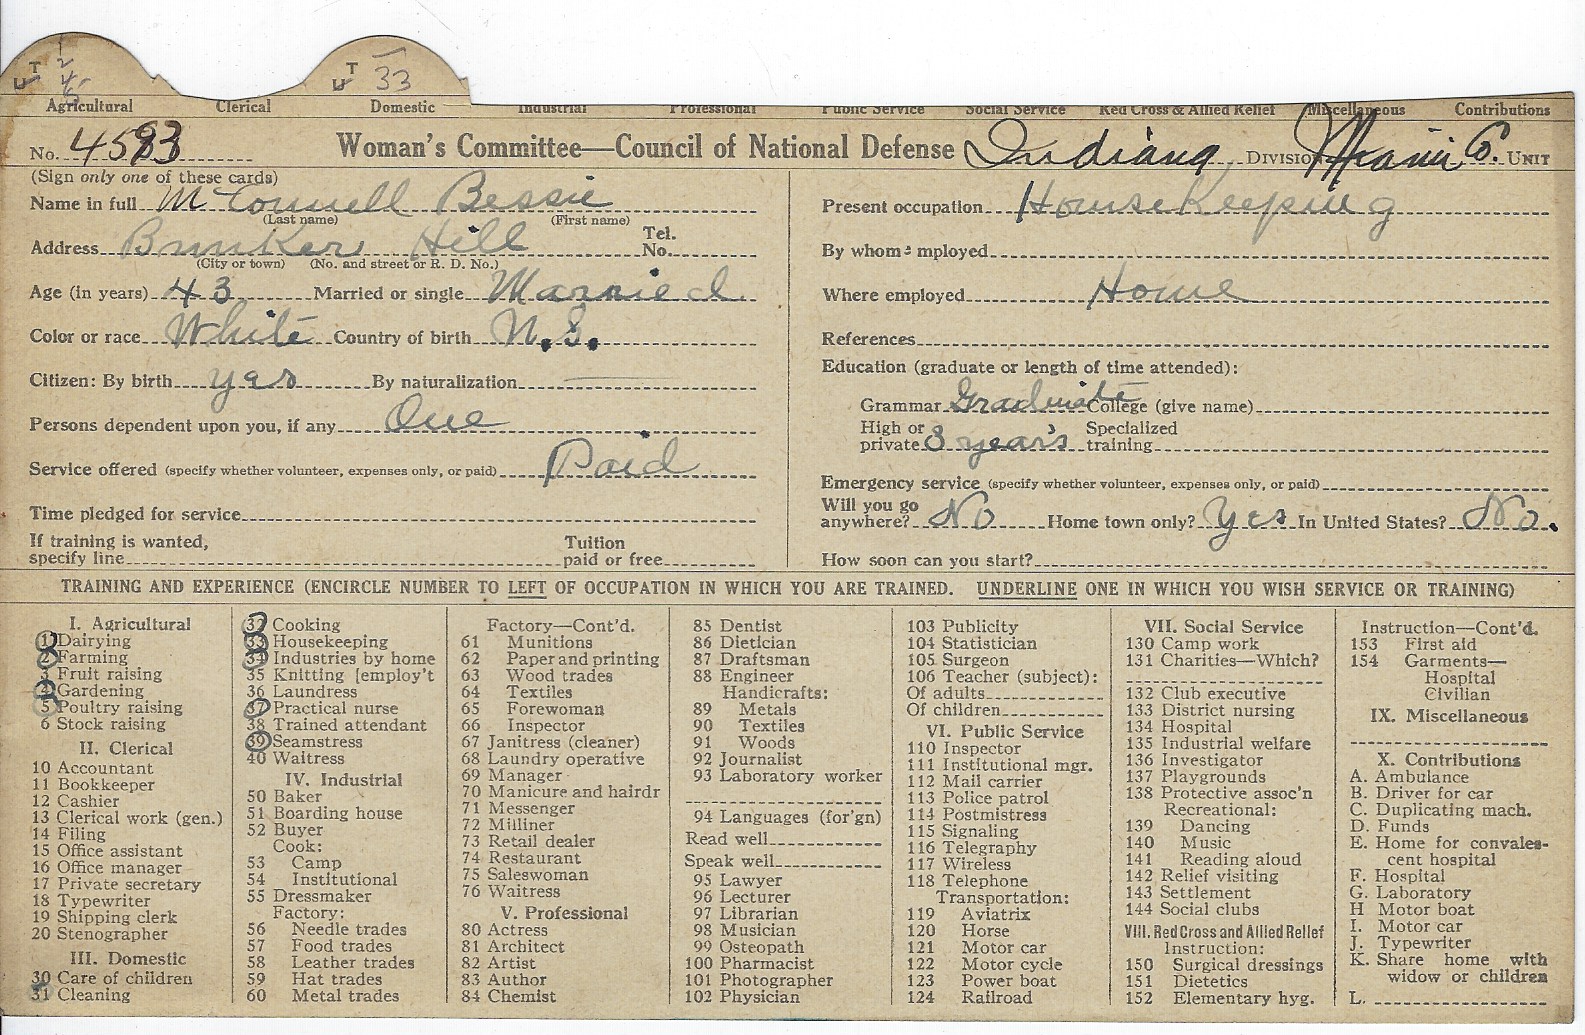 1
2
4
5
T 33
Agricultural Clerical Domestic Industrial Professional Public Service Social Service Red Cross & Allied Relief Miscellaneous Contributions
No. 4593 Woman's Committee—Council of National Defense Indiana DIVISION Miami Co. UNIT
(Sign only one of these cards)
Name in full McConnell Bessie
(Last name) (First name)
Address Bunker Hill Tel. No.
(City or town) (No. and street or R. D. No.)
Age (in years) 43 Married or single Married
Color or race White Country of birth U.S.
Citizen: By birth yes By naturalization
Persons dependent upon you, if any One
Service offered (specify whether volunteer, expenses only, or paid) Paid
Time pledged for service
If training is wanted,
specify line
Tuition
paid or free
Present occupation HouseKeeping
By whom employed
Where employed Home
References
Education (graduate or length of time attended):
Grammar Graduate College (give name)
High or
private 3 years
Specialized
training
Emergency service (specify whether volunteer, expenses only, or paid)
Will you go
anywhere? No Home town only? Yes In United States? No.
How soon can you start?
TRAINING AND EXPERIENCE (ENCIRCLE NUMBER TO LEFT OF OCCUPATION IN WHICH YOU ARE TRAINED. UNDERLINE ONE IN WHICH YOU WISH SERVICE OR TRAINING)
I. Agricultural
1 Dairying
2 Farming
3 Fruit raising
4 Gardening
5 Poultry raising
6 Stock raising
II. Clerical
10 Accountant
11 Bookkeeper
12 Cashier
13 Clerical work (gen.)
14 Filing
15 Office assistant
16 Office manager
17 Private secretary
18 Typewriter
19 Shipping clerk
20 Stenographer
III. Domestic
30 Care of children
31 Cleaning
32 Cooking
33 Housekeeping
34 Industries by home
35 Knitting [employ't
36 Laundress
37 Practical nurse
38 Trained attendant
39 Seamstress
40 Waitress
IV. Industrial
50 Baker
51 Boarding house
52 Buyer
Cook:
53 Camp
54 Institutional
55 Dressmaker
Factory:
56 Needle trades
57 Food trades
58 Leather trades
59 Hat trades
60 Metal trades
Factory—Cont'd.
61 Munitions
62 Paper and printing
63 Wood trades
64 Textiles
65 Forewoman
66 Inspector
67 Janitress (cleaner)
68 Laundry operative
69 Manager
70 Manicure and hairdr
71 Messenger
72 Milliner
73 Retail dealer
74 Restaurant
75 Saleswoman
76 Waitress
V. Professional
80 Actress
81 Architect
82 Artist
83 Author
84 Chemist
85 Dentist
86 Dietician
87 Draftsman
88 Engineer
Handicrafts:
89 Metals
90 Textiles
91 Woods
92 Journalist
93 Laboratory worker
94 Languages (for'gn)
Read well
Speak well
95 Lawyer
96 Lecturer
97 Librarian
98 Musician
99 Osteopath
100 Pharmacist
101 Photographer
102 Physician
103 Publicity
104 Statistician
105 Surgeon
106 Teacher (subject):
Of adults
Of children
VI. Public Service
110 Inspector
111 Institutional mgr.
112 Mail carrier
113 Police patrol
114 Postmistress
115 Signaling
116 Telegraphy
117 Wireless
118 Telephone
Transportation:
119 Aviatrix
120 Horse
121 Motor car
122 Motor cycle
123 Power boat
124 Railroad
VII. Social Service
130 Camp work
131 Charities—Which?
132 Club executive
133 District nursing
134 Hospital
135 Industrial welfare
136 Investigator
137 Playgrounds
138 Protective assoc'n
Recreational:
139 Dancing
140 Music
141 Reading aloud
142 Relief visiting
143 Settlement
144 Social clubs
VIII. Red Cross and Allied Relief
Instruction:
150 Surgical dressings
151 Dietetics
152 Elementary hyg.
Instruction—Cont'd.
153 First aid
154 Garments—
Hospital
Civilian
IX. Miscellaneous
X. Contributions
A. Ambulance
B. Driver for car
C. Duplicating mach.
D. Funds
E. Home for convales-
cent hospital
F. Hospital
G. Laboratory
H Motor boat
I. Motor car
J. Typewriter
K. Share home with
widow or children
L.